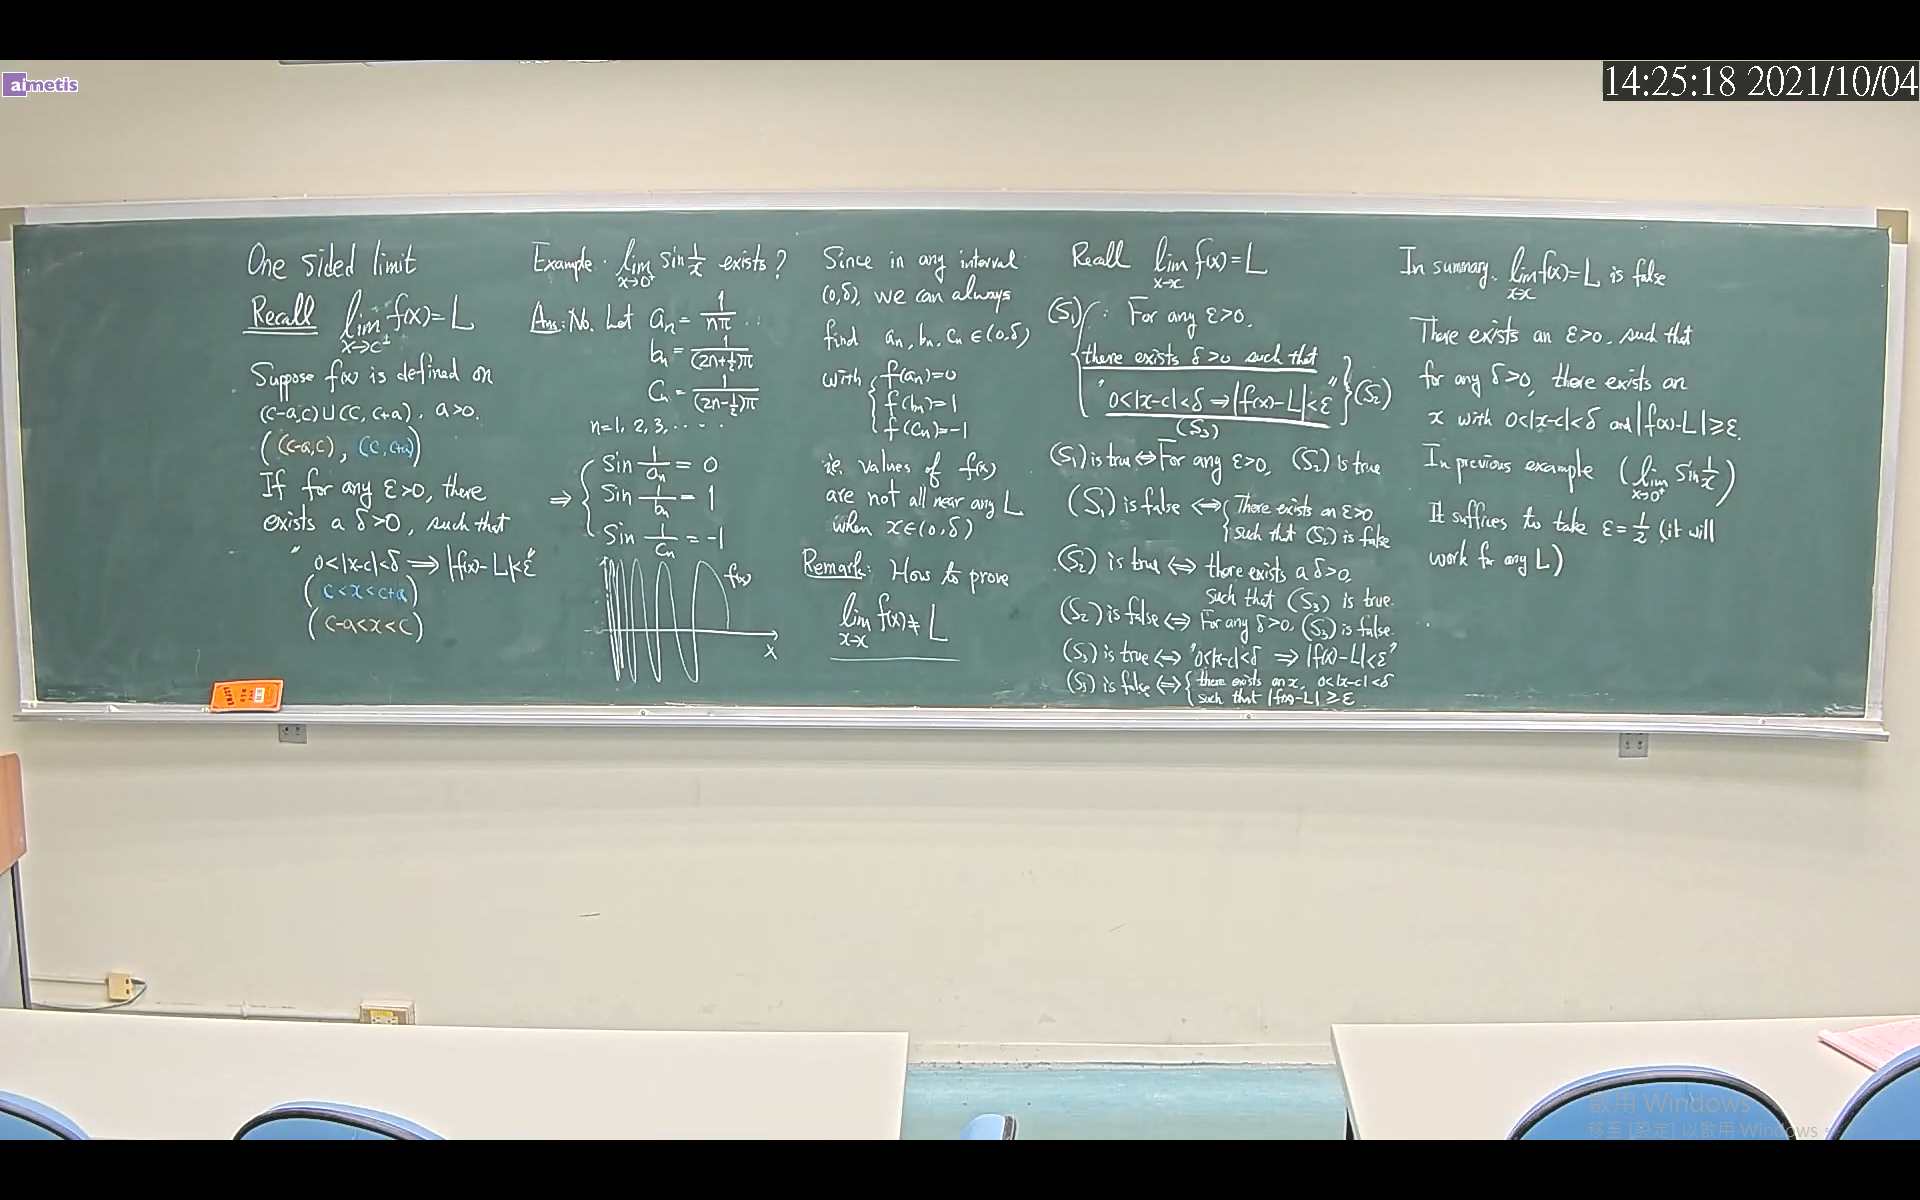 aimetis
14:25:18 2021/10/04
One sided limit
Recall lim f(x)=L
x→c±
Suppose f(x) is defined on
(c-a,c)∪(c,c+a), a>0.
((c-a,c), (c,c+a))
If for any ε>0, there
exists a δ>0, such that
"0<|x-c|<δ ⟹ |f(x)-L|<ε"
(c<x<c+a)
(c-a<x<c)
Example. lim sin 1/x exists?
x→0⁺
Ans: No. Let aₙ = 1/nπ
bₙ = 1/(2n+½)π
cₙ = 1/(2n-½)π
n=1, 2, 3, ....
⇒ { Sin 1/aₙ = 0
Sin 1/bₙ = 1
Sin 1/cₙ = -1
f(x)
x
Since in any interval
(0,δ), we can always
find aₙ, bₙ, cₙ ∈ (0,δ)
with { f(aₙ)=0
f(bₙ)=1
f(cₙ)=-1
ie. values of f(x)
are not all near any L
when x∈(0,δ)
Remark: How to prove
lim f(x)≠L
x→x
Recall lim f(x)=L
x→x
(S₁) { For any ε>0,
there exists δ>0 such that
"0<|x-c|<δ ⇒ |f(x)-L|<ε" } (S₂)
(S₃)
(S₁) is true ⇔ For any ε>0, (S₂) is true
(S₁) is false ⇔ { There exists an ε>0
such that (S₂) is false
(S₂) is true ⇔ there exists a δ>0,
such that (S₃) is true.
(S₂) is false ⇔ For any δ>0, (S₃) is false.
(S₃) is true ⇔ "0<|x-c|<δ ⇒ |f(x)-L|<ε"
(S₃) is false ⇔ { there exists an x, 0<|x-c|<δ
such that |f(x)-L| ≥ ε
In summary. lim f(x)=L is false
x→x
There exists an ε>0, such that
for any δ>0, there exists an
x with 0<|x-c|<δ and |f(x)-L|≥ε.
In previous example (lim sin 1/x)
x→0⁺
It suffices to take ε=½ (it will
work for any L)
啟用 Windows
移至 [設定] 以啟用 Windows。